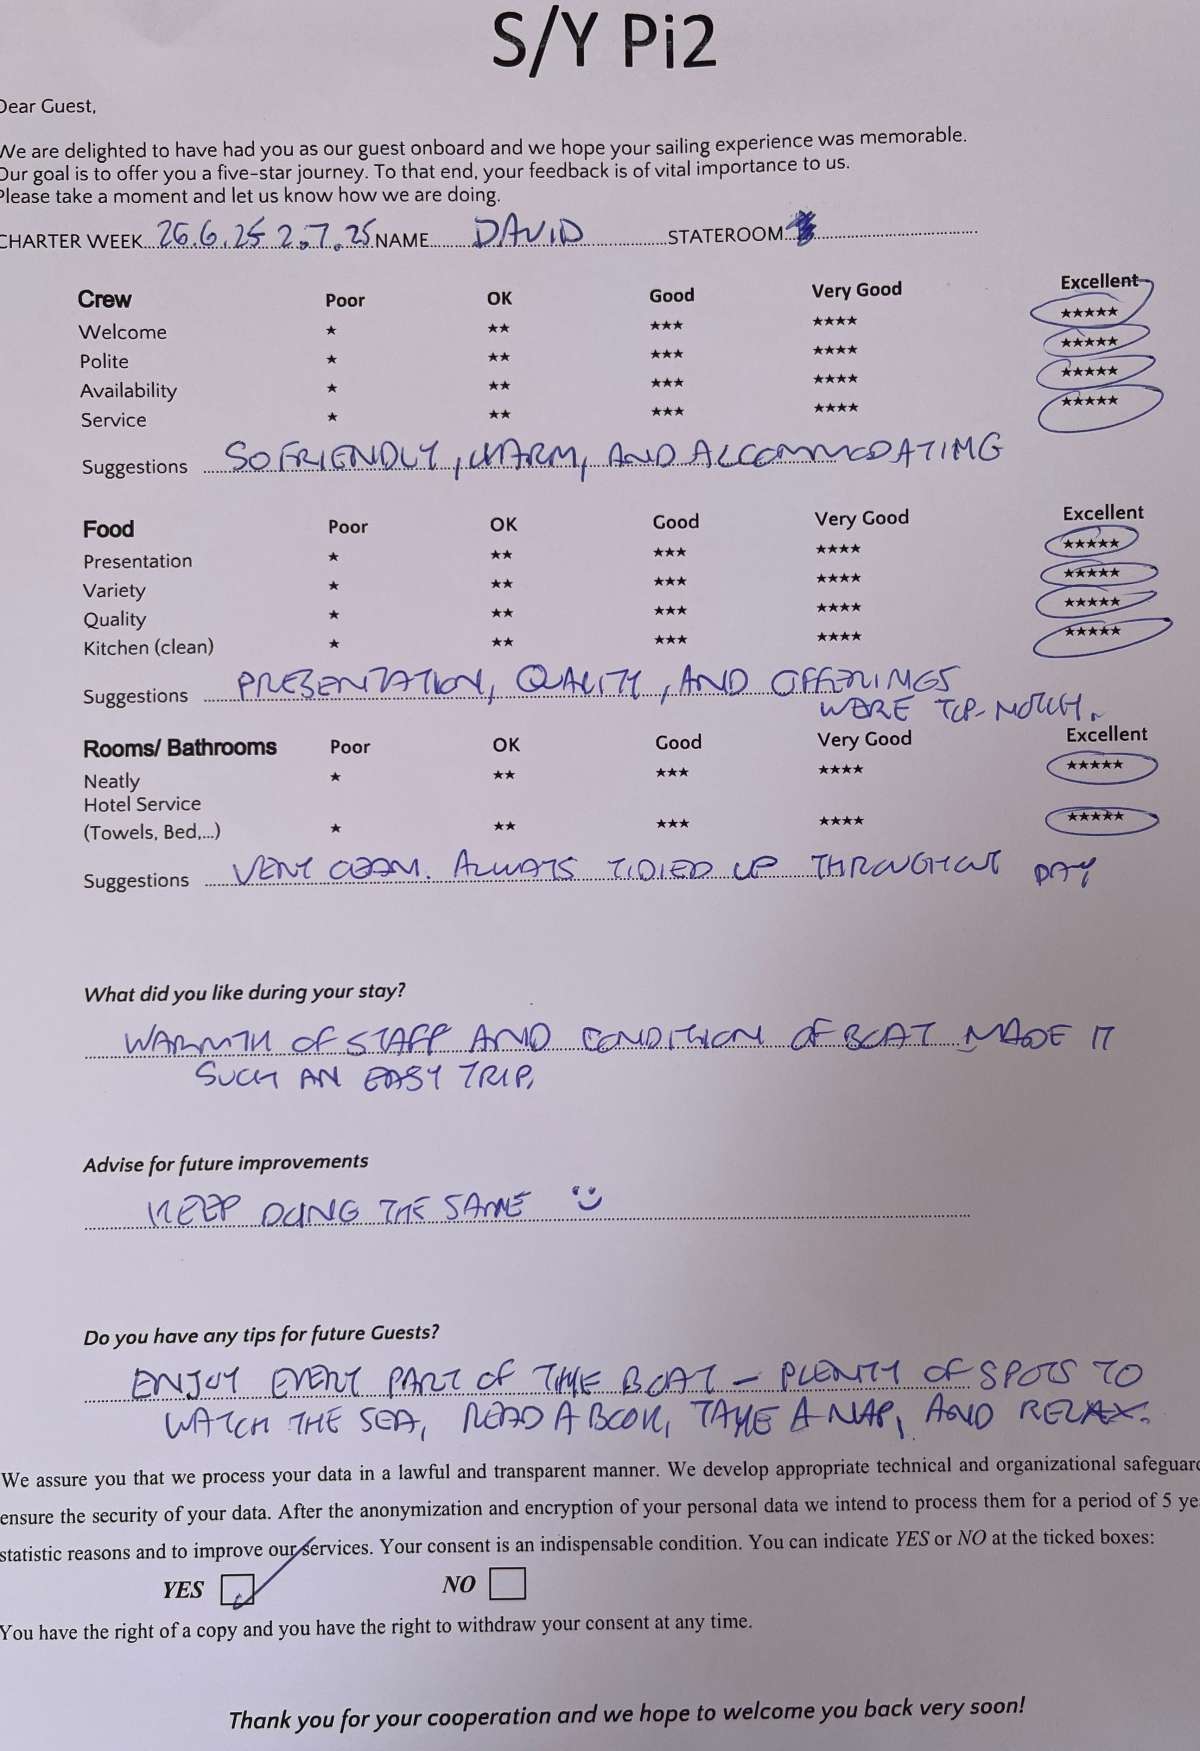 S/Y Pi2
Dear Guest,
We are delighted to have had you as our guest onboard and we hope your sailing experience was memorable.
Our goal is to offer you a five-star journey. To that end, your feedback is of vital importance to us.
Please take a moment and let us know how we are doing.
CHARTER WEEK 26.6.25 2.7.25 NAME DAVID STATEROOM
Crew Poor OK Good Very Good Excellent
Welcome ★ ★★ ★★★ ★★★★ ★★★★★
Polite ★ ★★ ★★★ ★★★★ ★★★★★
Availability ★ ★★ ★★★ ★★★★ ★★★★★
Service ★ ★★ ★★★ ★★★★ ★★★★★
Suggestions SO FRIENDLY, WARM, AND ACCOMMODATING
Food Poor OK Good Very Good Excellent
Presentation ★ ★★ ★★★ ★★★★ ★★★★★
Variety ★ ★★ ★★★ ★★★★ ★★★★★
Quality ★ ★★ ★★★ ★★★★ ★★★★★
Kitchen (clean) ★ ★★ ★★★ ★★★★ ★★★★★
Suggestions PRESENTATION, QUALITY, AND OFFERINGS
WERE TOP-NOTCH.
Rooms/ Bathrooms Poor OK Good Very Good Excellent
Neatly ★ ★★ ★★★ ★★★★ ★★★★★
Hotel Service
(Towels, Bed,...) ★ ★★ ★★★ ★★★★ ★★★★★
Suggestions VERY CLEAN. ALWAYS TIDIED UP THROUGHOUT DAY
What did you like during your stay?
WARMTH OF STAFF AND CONDITION OF BOAT MADE IT
SUCH AN EASY TRIP.
Advise for future improvements
KEEP DOING THE SAME
Do you have any tips for future Guests?
ENJOY EVERY PART OF THE BOAT - PLENTY OF SPOTS TO
WATCH THE SEA, READ A BOOK, TAKE A NAP, AND RELAX.
We assure you that we process your data in a lawful and transparent manner. We develop appropriate technical and organizational safeguar
ensure the security of your data. After the anonymization and encryption of your personal data we intend to process them for a period of 5 ye
statistic reasons and to improve our services. Your consent is an indispensable condition. You can indicate YES or NO at the ticked boxes:
YES NO
You have the right of a copy and you have the right to withdraw your consent at any time.
Thank you for your cooperation and we hope to welcome you back very soon!